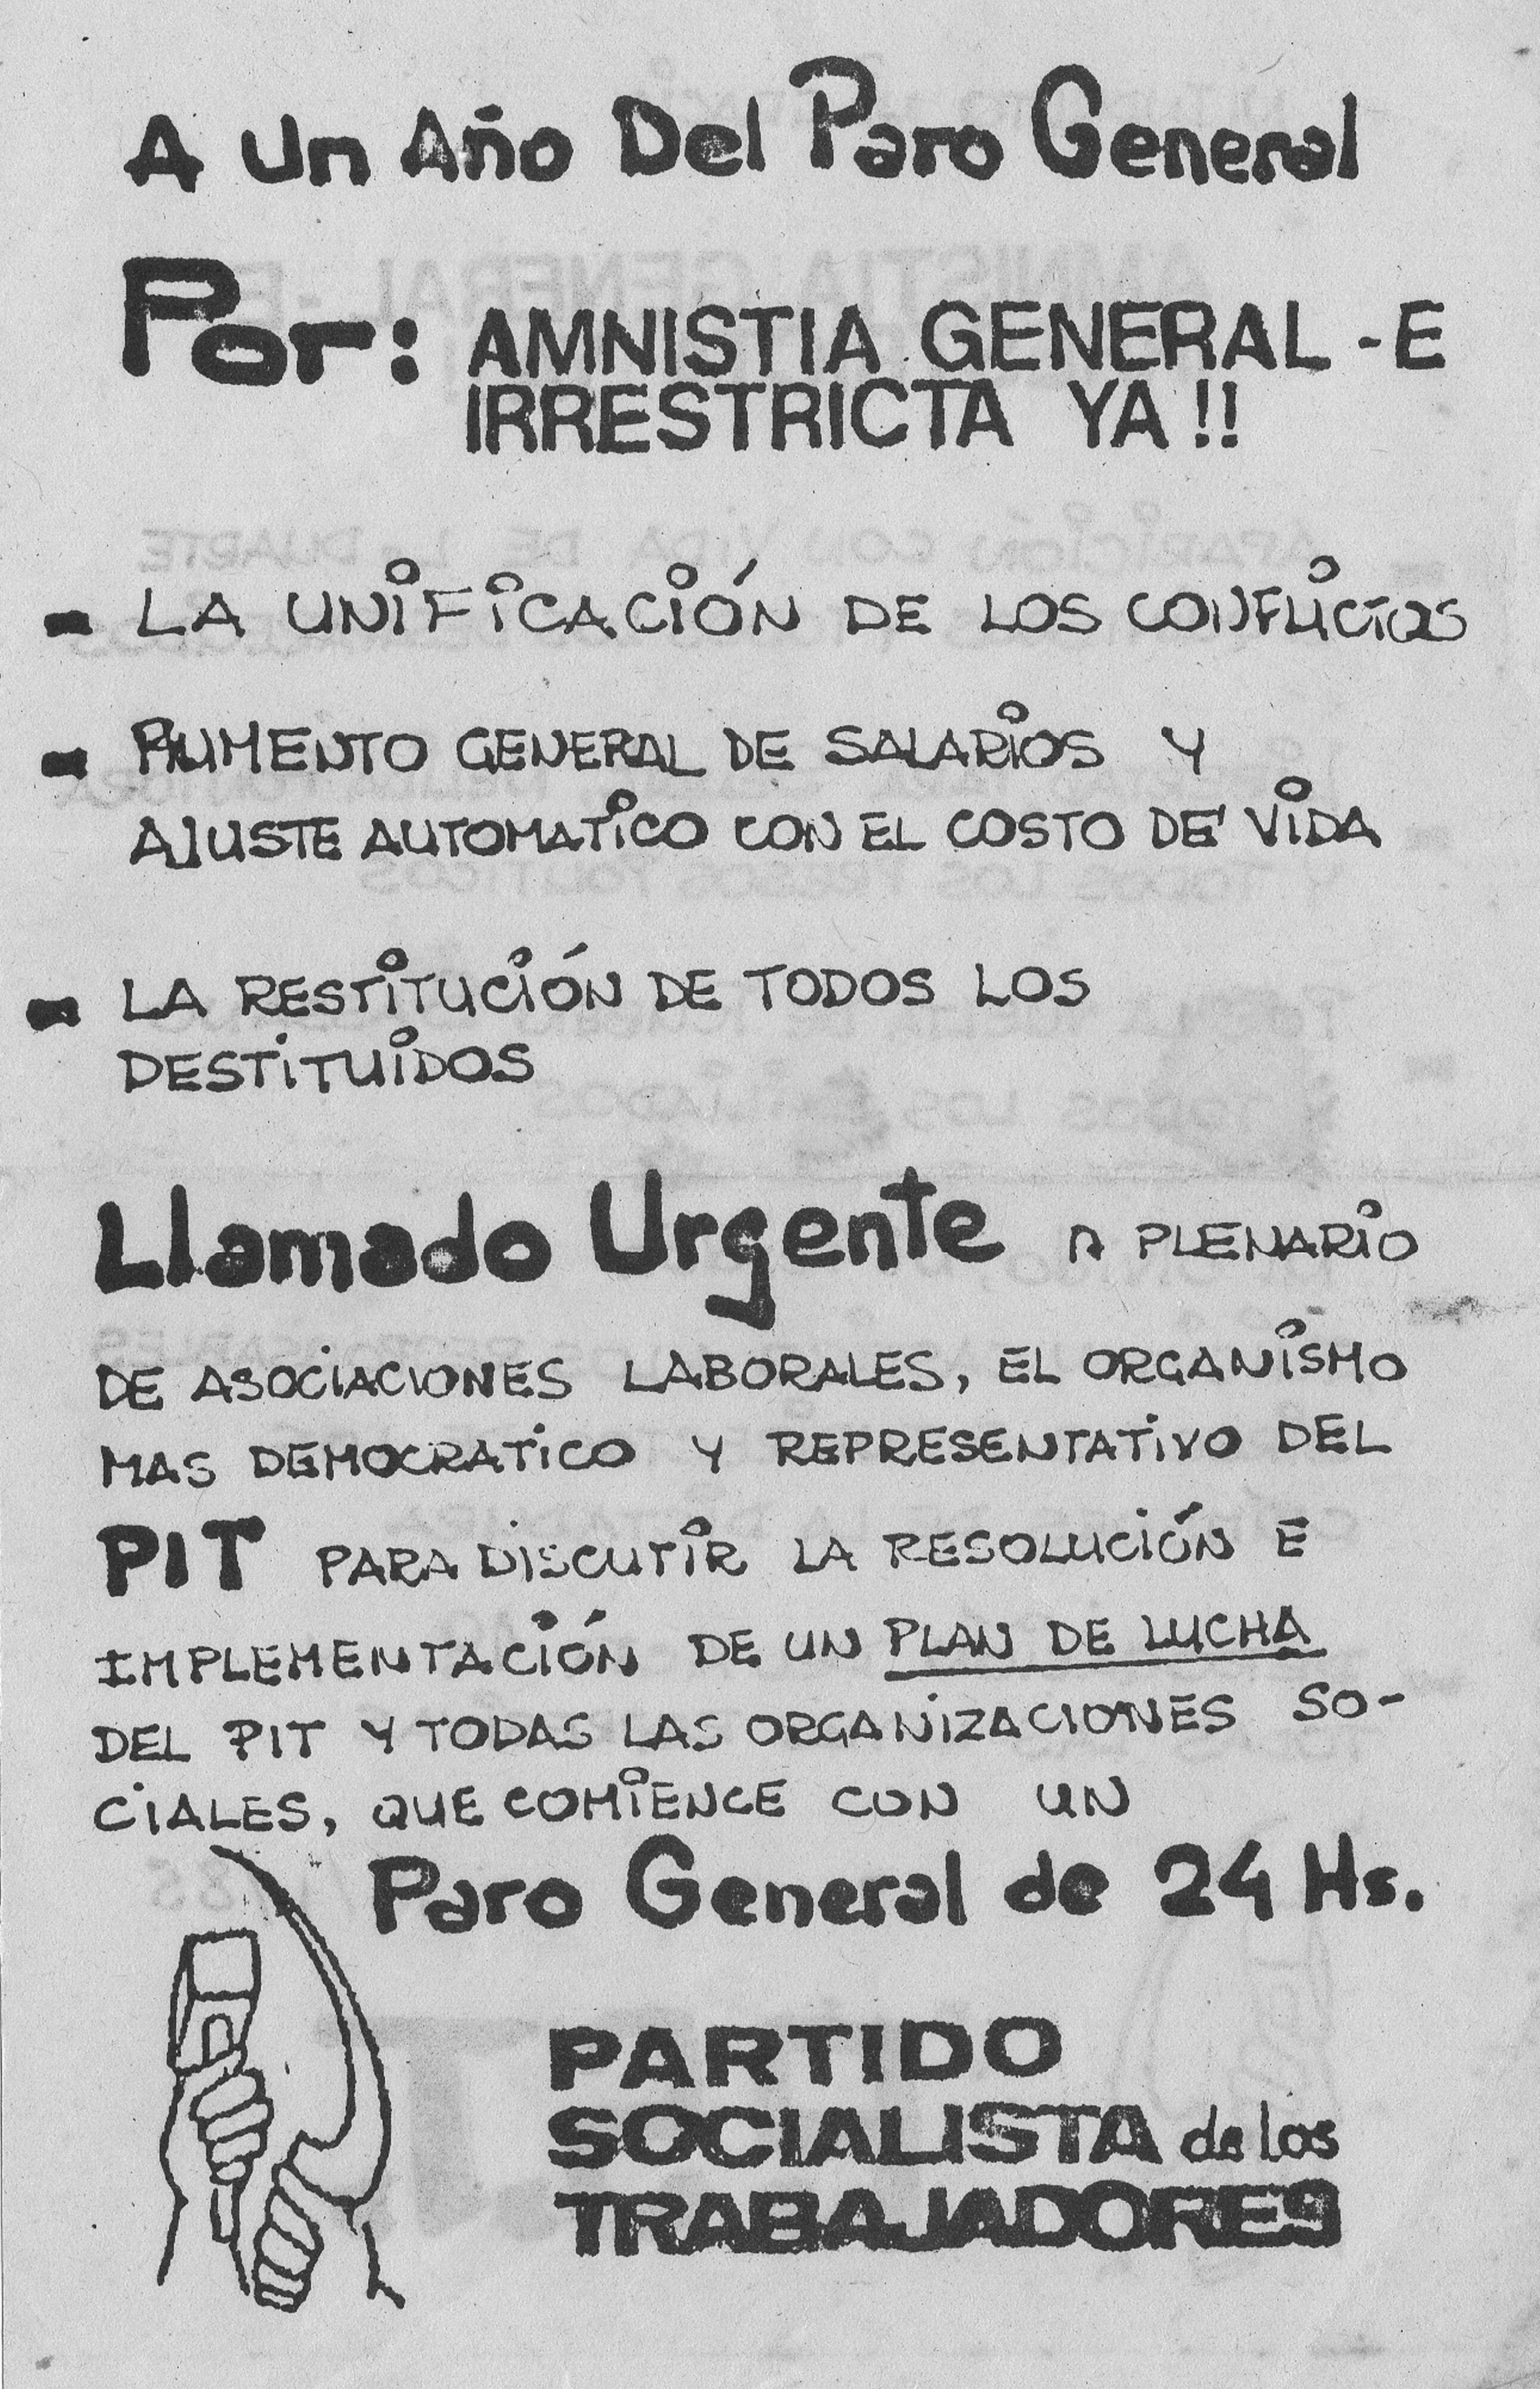 A Un Año Del Paro General
Por: AMNISTIA GENERAL - E
IRRESTRICTA YA !!
- LA UNIFICACIÓN DE LOS CONFLICTOS
- AUMENTO GENERAL DE SALARIOS Y
AJUSTE AUTOMATICO CON EL COSTO DE VIDA
- LA RESTITUCIÓN DE TODOS LOS
DESTITUIDOS
Llamado Urgente A PLENARIO
DE ASOCIACIONES LABORALES, EL ORGANISMO
MAS DEMOCRATICO Y REPRESENTATIVO DEL
PIT PARA DISCUTIR LA RESOLUCIÓN E
IMPLEMENTACIÓN DE UN PLAN DE LUCHA
DEL PIT Y TODAS LAS ORGANIZACIONES SO-
CIALES, QUE COMIENCE CON UN
Paro General de 24 Hs.
PARTIDO
SOCIALISTA de los
TRABAJADORES